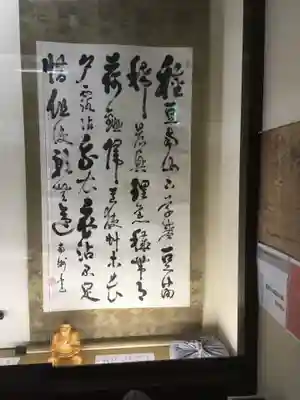 種豆南山下草盛豆苗
稀晨興理荒穢帶月
荷鋤歸道狹草木長
夕露沾我衣衣沾不足
惜但使願無違